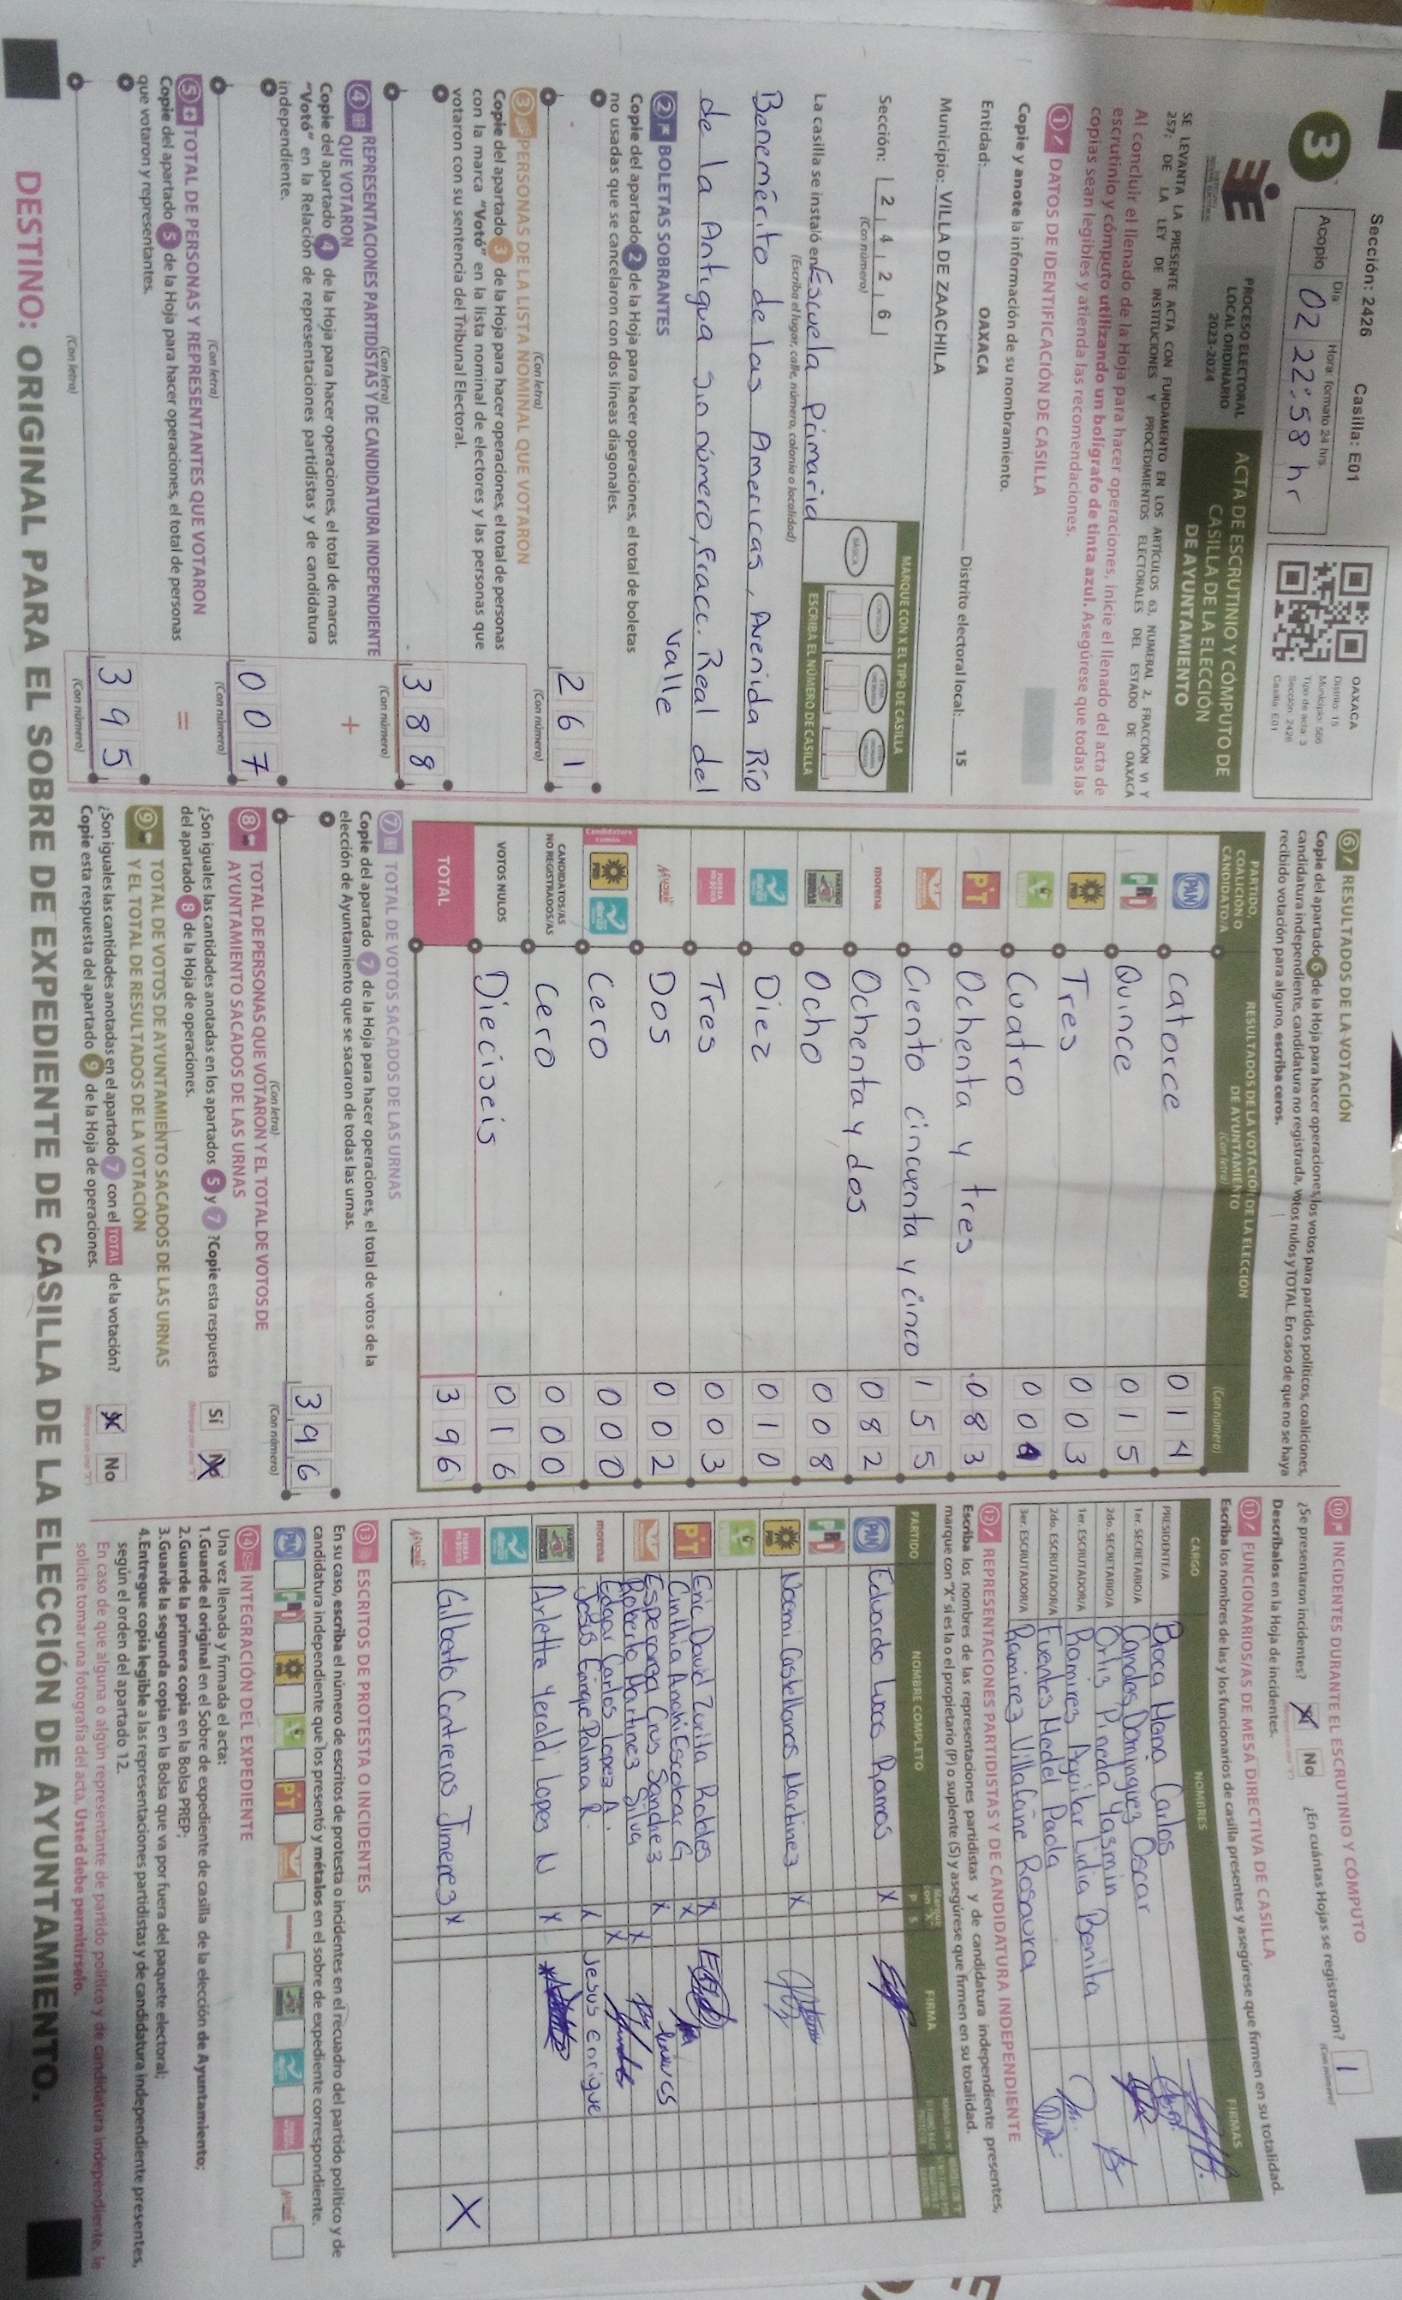 Sección: 2426 Casilla: E01
3
Día Hora: formato 24 hrs
Acopio 02 22:58 hr
OAXACA
Distrito: 15
Tipo de acta: 3
Sección: 2426
Casilla: E01
PROCESO ELECTORAL
LOCAL ORDINARIO
2023-2024
ACTA DE ESCRUTINIO Y CÓMPUTO DE
CASILLA DE LA ELECCIÓN
DE AYUNTAMIENTO
SE LEVANTA LA PRESENTE ACTA CON FUNDAMENTO EN LOS ARTÍCULOS 63, NUMERAL 2, FRACCIÓN VI Y
257; DE LA LEY DE INSTITUCIONES Y PROCEDIMIENTOS ELECTORALES DEL ESTADO DE OAXACA
Al concluir el llenado de la Hoja para hacer operaciones, inicie el llenado del acta de
escrutinio y cómputo utilizando un bolígrafo de tinta azul. Asegúrese que todas las
copias sean legibles y atienda las recomendaciones.
1 DATOS DE IDENTIFICACIÓN DE CASILLA
Copie y anote la información de su nombramiento.
Entidad: OAXACA Distrito electoral local: 15
Municipio: VILLA DE ZAACHILA
Sección: 2 4 2 6
(Con número)
MARQUE CON X EL TIPO DE CASILLA
BÁSICA
ESCRIBA EL NÚMERO DE CASILLA
La casilla se instaló en: Escuela Primaria
(Escriba el lugar, calle, número, colonia o localidad)
Benemérito de las Americas, Avenida Río
Valle
de la Antigua Sin número, fracc. Real del
2 BOLETAS SOBRANTES
Copie del apartado 2 de la Hoja para hacer operaciones, el total de boletas
no usadas que se cancelaron con dos líneas diagonales.
261
(Con letra) (Con número)
3 PERSONAS DE LA LISTA NOMINAL QUE VOTARON
Copie del apartado 3 de la Hoja para hacer operaciones, el total de personas
con la marca "Votó" en la lista nominal de electores y las personas que
votaron con su sentencia del Tribunal Electoral.
388
(Con letra) (Con número)
4 REPRESENTACIONES PARTIDISTAS Y DE CANDIDATURA INDEPENDIENTE
QUE VOTARON +
Copie del apartado 4 de la Hoja para hacer operaciones, el total de marcas
"Votó" en la Relación de representaciones partidistas y de candidatura
independiente.
007
(Con letra) (Con número)
5 TOTAL DE PERSONAS Y REPRESENTANTES QUE VOTARON =
Copie del apartado 5 de la Hoja para hacer operaciones, el total de personas
que votaron y representantes.
395
(Con letra) (Con número)
6 RESULTADOS DE LA VOTACIÓN
Copie del apartado 6 de la Hoja para hacer operaciones, los votos para partidos políticos, coaliciones,
candidatura independiente, candidatura no registrada, votos nulos y TOTAL. En caso de que no se haya
recibido votación para alguno, escriba ceros.
PARTIDO,
COALICIÓN O
CANDIDATO/A
RESULTADOS DE LA VOTACIÓN DE LA ELECCIÓN
DE AYUNTAMIENTO
(Con letra) (Con número)
PAN catorce 014
PRI Quince 015
PRD Tres 003
Cuatro 004
PT Ochenta y tres 083
Ciento cincuenta y cinco 155
morena Ochenta y dos 082
Ocho 008
Diez 010
FUERZA Tres 003
Dos 002
Candidatura común
PRD Cero 000
CANDIDATOS/AS
NO REGISTRADOS/AS Cero 000
VOTOS NULOS Dieciseis 016
TOTAL 396
7 TOTAL DE VOTOS SACADOS DE LAS URNAS
Copie del apartado 7 de la Hoja para hacer operaciones, el total de votos de la
elección de Ayuntamiento que se sacaron de todas las urnas.
396
(Con letra) (Con número)
8 TOTAL DE PERSONAS QUE VOTARON Y EL TOTAL DE VOTOS DE
AYUNTAMIENTO SACADOS DE LAS URNAS
¿Son iguales las cantidades anotadas en los apartados 5 y 7? Copie esta respuesta
del apartado 8 de la Hoja de operaciones. Sí No X
9 TOTAL DE VOTOS DE AYUNTAMIENTO SACADOS DE LAS URNAS
Y EL TOTAL DE RESULTADOS DE LA VOTACIÓN
¿Son iguales las cantidades anotadas en el apartado 7 con el TOTAL de la votación?
Copie esta respuesta del apartado 9 de la Hoja de operaciones. X No
10 INCIDENTES DURANTE EL ESCRUTINIO Y CÓMPUTO
¿Se presentaron incidentes? X No ¿En cuántas Hojas se registraron? 1
Descríbalos en la Hoja de incidentes.
11 FUNCIONARIOS/AS DE MESA DIRECTIVA DE CASILLA
Escriba los nombres de las y los funcionarios de casilla presentes y asegúrese que firmen en su totalidad.
CARGO NOMBRES FIRMAS
PRESIDENTE/A Carlos
1er. SECRETARIO/A Canales Dominguez Oscar
2do. SECRETARIO/A Ortiz Pineda Yasmin
1er. ESCRUTADOR/A Ramires Aguilar Lidia Benita
2do. ESCRUTADOR/A Fuentes Medel Paola
3er. ESCRUTADOR/A Ramirez Villafañe Rosaura
12 REPRESENTACIONES PARTIDISTAS Y DE CANDIDATURA INDEPENDIENTE
Escriba los nombres de las representaciones partidistas y de candidatura independiente presentes,
marque con "X" si es la o el propietario (P) o suplente (S) y asegúrese que firmen en su totalidad.
PARTIDO NOMBRE COMPLETO P S FIRMA
PAN Eduardo Lucas Ramos X
PRI
PRD Noemi Castellanos Martinez X
PT Eric David Zurita Robles X
Cinthia Anahi Escobar G X
Esperanza Cruz Sanchez X
Roberto Martinez Silva X
morena Edgar Carlos Lopez A. X
Jesus Enrique Palma R. X Jesus Enrique
Arlette Yeraldi Lopes N X
FUERZA Gilberto Contreras Jimenes X X
13 ESCRITOS DE PROTESTA O INCIDENTES
En su caso, escriba el número de escritos de protesta o incidentes en el recuadro del partido político y de
candidatura independiente que los presentó y métalos en el sobre de expediente correspondiente.
14 INTEGRACIÓN DEL EXPEDIENTE
Una vez llenada y firmada el acta:
1.Guarde el original en el Sobre de expediente de casilla de la elección de Ayuntamiento;
2.Guarde la primera copia en la Bolsa PREP;
3.Guarde la segunda copia en la Bolsa que va por fuera del paquete electoral;
4.Entregue copia legible a las representaciones partidistas y de candidatura independiente presentes,
según el orden del apartado 12.
En caso de que alguna o algún representante de partido político y de candidatura independiente, le
solicite tomar una fotografía del acta, Usted debe permitírselo.
DESTINO: ORIGINAL PARA EL SOBRE DE EXPEDIENTE DE CASILLA DE LA ELECCIÓN DE AYUNTAMIENTO.